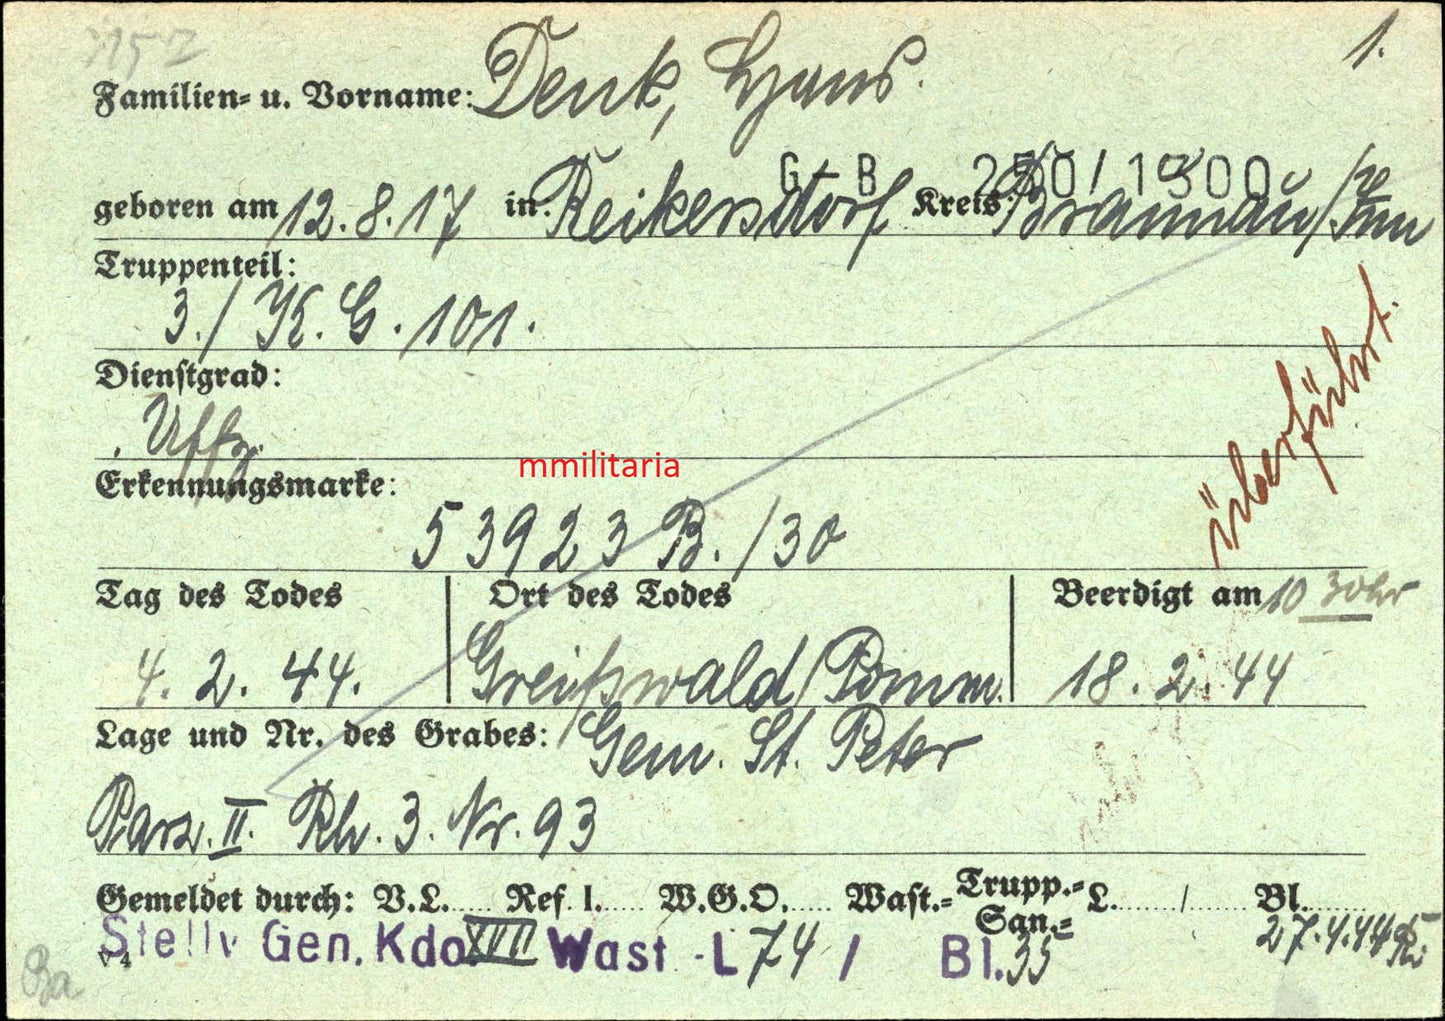 1.
Familien= u. Vorname: Denk, Hans.
G-B 250/1300
geboren am 12.8.17 in: Reikersdorf Kreis: Braunau/Inn
Truppenteil:
3./K.G.101.
Dienstgrad:
Uffz.
mmilitaria
Erkennungsmarke:
53923 B./30
überführt.
Tag des Todes Ort des Todes Beerdigt am 10 30 Uhr
4. 2. 44. Greifswald/Pomm. 18. 2. 44
Lage und Nr. des Grabes: Gem. St. Peter
Parz. II. Rh. 3. Nr. 93
Gemeldet durch: V.L..... Ref. I. ..... W.G.O. ..... Wast.= Trupp.= San.= L......../ Bl.......
Stellv Gen. Kdo. XVII Wast - L 74 / Bl. 35 27.4.44
V 4
Ba